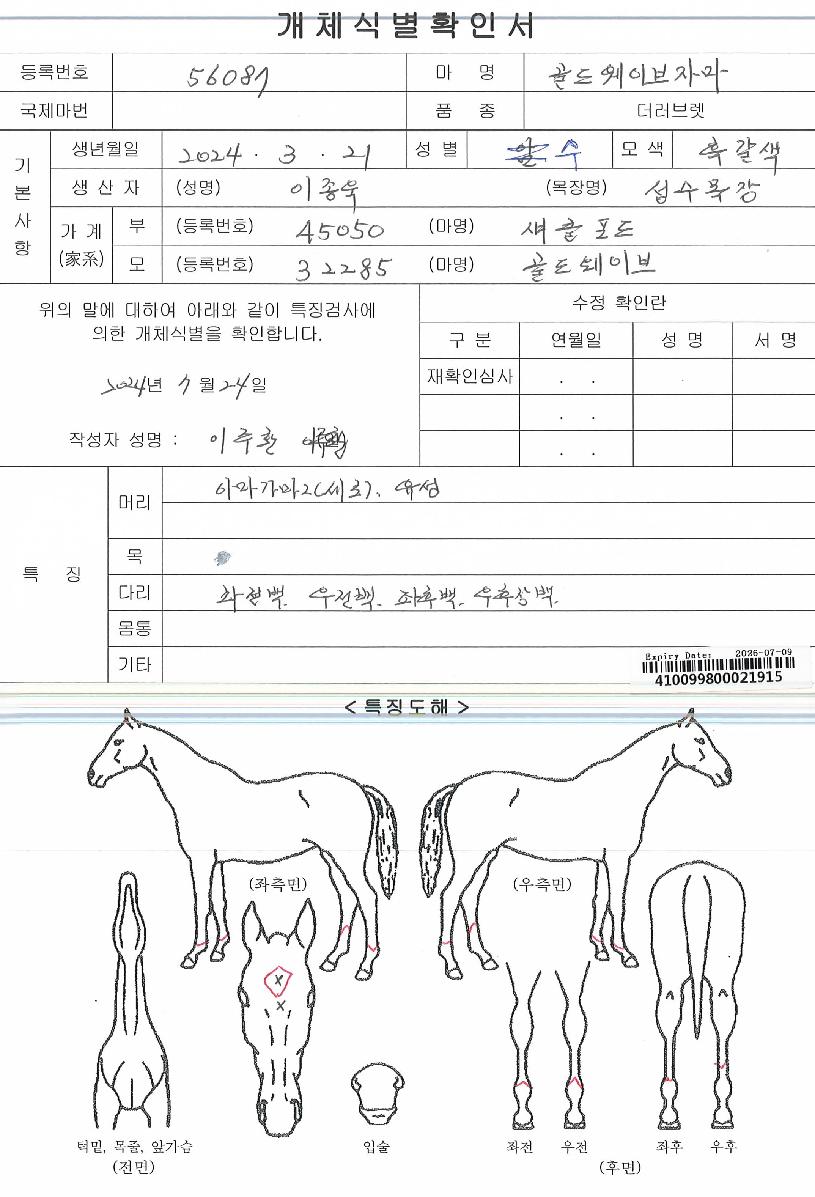 개체식별확인서
등록번호 56087 마 명 골드웨이브자마
국제마번 품 종 더러브렛
기본사항
생년월일 2024 . 3 . 21 성 별 수 모 색 흑갈색
생 산 자 (성명) 이종욱 (목장명) 섭수목장
가 계 (家系)
부 (등록번호) 45050 (마명) 섀클포드
모 (등록번호) 32285 (마명) 골드웨이브
위의 말에 대하여 아래와 같이 특징검사에
의한 개체식별을 확인합니다.
2024년 7월 24일
작성자 성명 : 이주환
수정 확인란
구 분 연월일 성 명 서 명
재확인심사 . .
. .
. .
특 징
머리 이마가마2(세로), 유성
목
다리 좌전백. 우전백. 좌후백. 우후장백.
몸통
기타
Expiry Date: 2026-07-09
410099800021915
< 특징도해 >
(좌측면) (우측면)
턱밑, 목줄, 앞가슴
(전면)
입술
좌전 우전 좌후 우후
(후면)